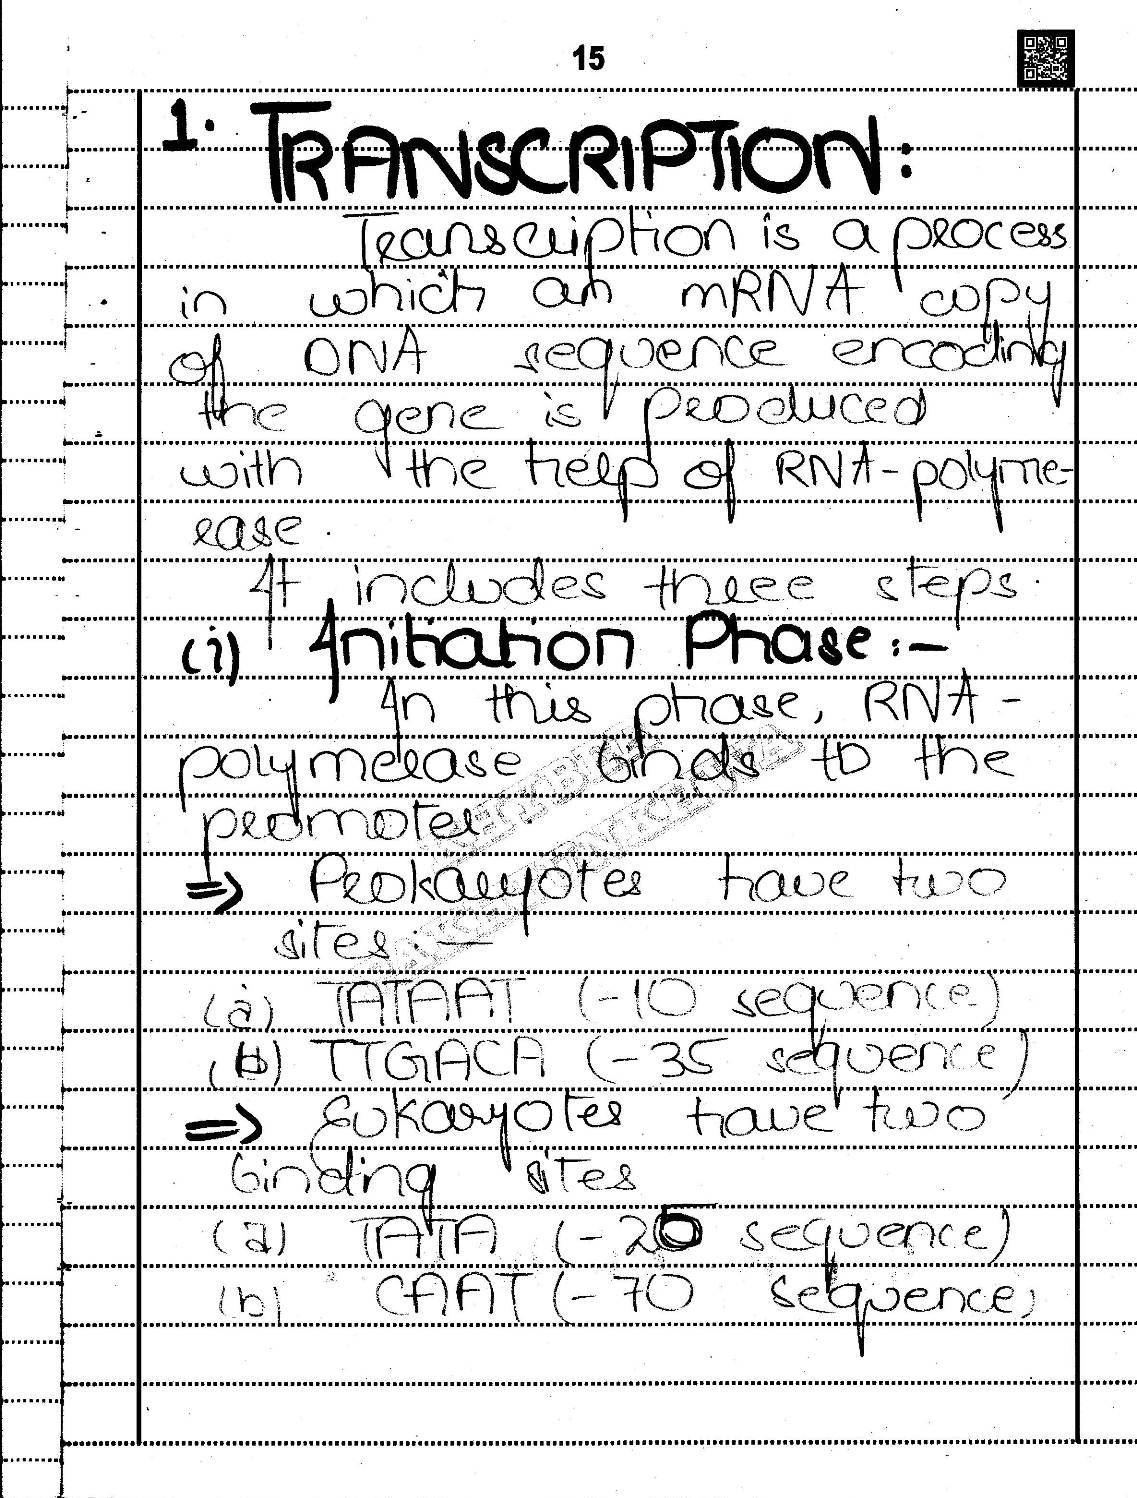 15
1. TRANSCRIPTION:
Transcription is a process
in which an mRNA copy
of DNA sequence encoding
the gene is produced
with the help of RNA-polyme-
rase.
It includes three steps.
(i) Initiation Phase:-
In this phase, RNA-
polymerase binds to the
promoter
⇒ Prokaryotes have two
sites:-
(a) TATAAT (-10 sequence)
(b) TTGACA (-35 sequence)
⇒ Eukaryotes have two
binding sites
(a) TATA (-25 sequence)
(b) CAAT (-70 sequence)